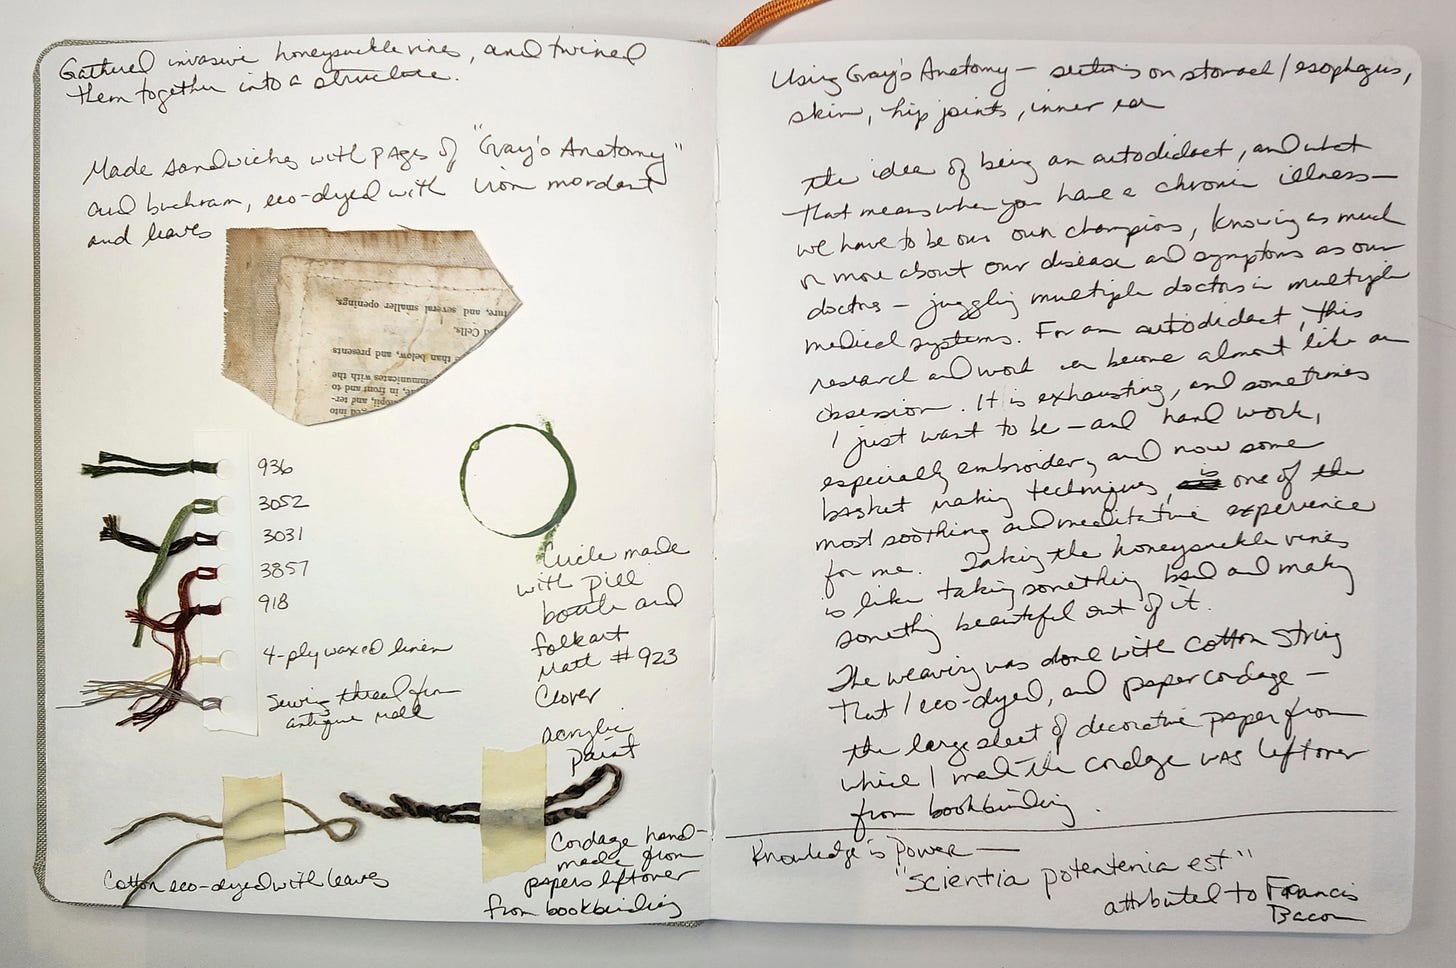 Gathered invasive honeysuckle vines, and twined
them together into a structure.
Made sandwiches with pages of "Gray's Anatomy"
and buckram, eco-dyed with iron mordant
and leaves
ture, and several smaller openings.
d Cells.
than below, and presents
mmunicates with the
, in front and to
opii, and ter-
ged into
936
3052
3031
3857
918
4-ply waxed linen
Sewing thread from
antique mall
Circle made
with pill
bottle and
folkart
Matt #923
Clover
acrylic
paint
Cotton eco-dyed with leaves
Cordage hand-
made from
papers leftover
from bookbinding
Using Gray's Anatomy — sections on stomach/esophagus,
skin, hip joints, inner ear
the idea of being an autodidact, and what
that means when you have a chronic illness —
we have to be our own champions, knowing as much
or more about our disease and symptoms as our
doctors — juggling multiple doctors in multiple
medical systems. For an autodidact, this
research and work can become almost like an
obsession. It is exhausting, and sometimes
I just want to be — and hand work,
especially embroidery and now some
basket making techniques, is one of the
most soothing and meditative experience
for me. Taking the honeysuckle vines
is like taking something bad and making
something beautiful out of it.
The weaving was done with cotton string
that I eco-dyed, and paper cordage —
the large sheet of decorative paper from
which I made the cordage was leftover
from bookbinding.
Knowledge is Power —
"scientia potentenia est"
attributed to Francis
Bacon